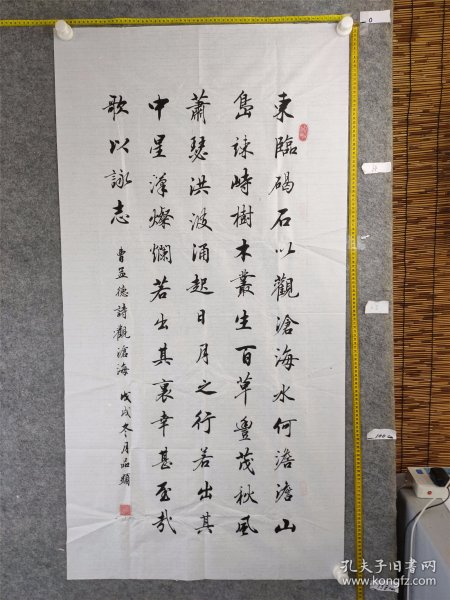 東臨碣石以觀滄海水何澹澹山
島竦峙樹木叢生百草豐茂秋風
蕭瑟洪波涌起日月之行若出其
中星漢燦爛若出其裏幸甚至哉
歌以詠志
曹孟德詩觀滄海 戊戌冬月品題
孔夫子旧书网
www.kongfz.com